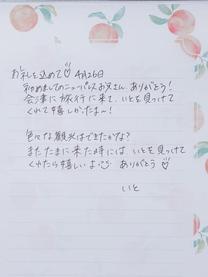 お礼を込めて♡ 4月26日
初めましてのニューパルスお兄さん ありがとう!
会津に旅行に来て、いとを見つけて
くれて嬉しかったよ〜!
色々な観光はできたかな?
またたまに来た時には いとを見つけて
くれたら嬉しいよ ありがとう♡
いと